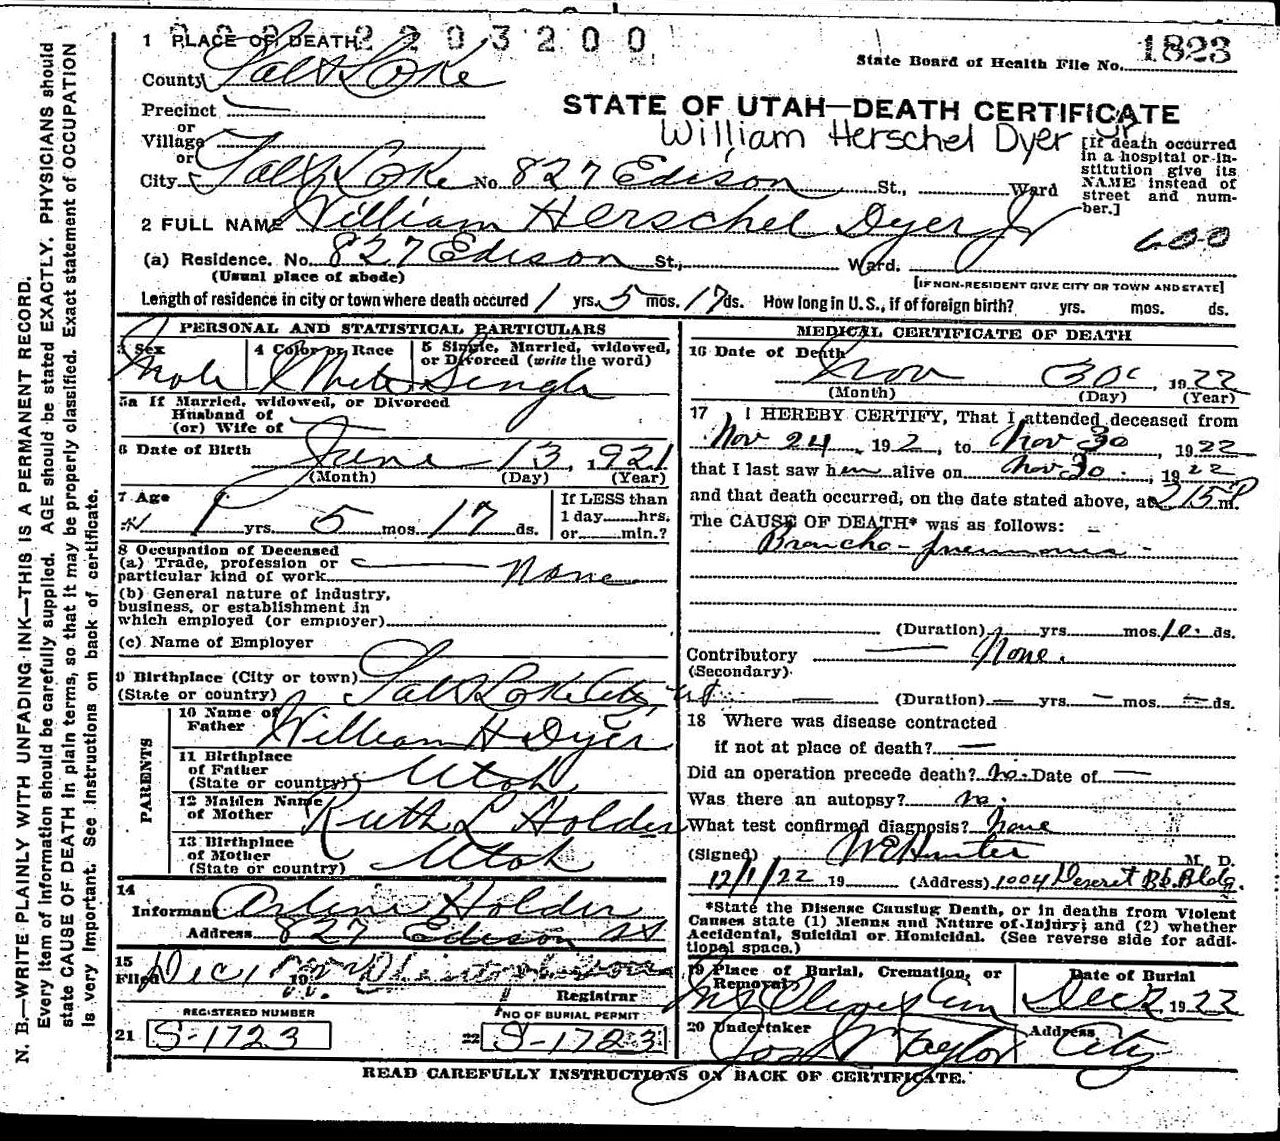 2203200
1 PLACE OF DEATH
State Board of Health File No. 1823
County Salt Lake
Precinct —
or
Village
or
City Salt Lake No. 827 Edison St., Ward
STATE OF UTAH—DEATH CERTIFICATE
William Herschel Dyer Jr
[If death occurred in a hospital or institution give its NAME instead of street and number.]
2 FULL NAME William Herschel Dyer Jr
600
(a) Residence. No. 827 Edison St., Ward.
(Usual place of abode)
[IF NON-RESIDENT GIVE CITY OR TOWN AND STATE]
Length of residence in city or town where death occured 1 yrs. 5 mos. 17 ds. How long in U.S., if of foreign birth? yrs. mos. ds.
PERSONAL AND STATISTICAL PARTICULARS
3 Sex Male
4 Color or Race White
5 Single, Married, widowed, or Divorced (write the word) Single
5a If Married, widowed, or Divorced
Husband of
(or) Wife of —
6 Date of Birth June 13, 1921
(Month) (Day) (Year)
7 Age 1 yrs. 5 mos. 17 ds.
If LESS than
1 day......hrs.
or......min.?
8 Occupation of Deceased
(a) Trade, profession or
particular kind of work — none
(b) General nature of industry,
business, or establishment in
which employed (or employer)
(c) Name of Employer
9 Birthplace (City or town) Salt Lake City, ut
(State or country)
PARENTS
10 Name of
Father William H Dyer
11 Birthplace
of Father
(State or country) Utah
12 Maiden Name
of Mother Ruth L Holder
13 Birthplace
of Mother
(State or country) Utah
14
Informant Arlene Holder
Address 827 Edison St
15
Filed Dec 1 19
Registrar
REGISTERED NUMBER
21 S-1723
NO OF BURIAL PERMIT
22 S-1723
MEDICAL CERTIFICATE OF DEATH
16 Date of Death
Nov 30, 1922
(Month) (Day) (Year)
17 I HEREBY CERTIFY, That I attended deceased from
Nov 24, 192, to Nov 30, 1922
that I last saw him alive on Nov 30, 1922
and that death occurred, on the date stated above, at 215 P m.
The CAUSE OF DEATH* was as follows:
Broncho-pneumonia
(Duration) yrs. mos. 10 ds.
Contributory — None.
(Secondary)
(Duration) — yrs. — mos. — ds.
18 Where was disease contracted
if not at place of death? —
Did an operation precede death? no. Date of —
Was there an autopsy? no.
What test confirmed diagnosis? None
(Signed) WE Hunter M. D.
12/1/22 19 (Address) 1004 Deseret Bk. Bldg.
*State the Disease Causing Death, or in deaths from Violent
Causes state (1) Means and Nature of Injury; and (2) whether
Accidental, Suicidal or Homicidal. (See reverse side for addi-
tional space.)
19 Place of Burial, Cremation, or Removal Mt Olivet Cem
Date of Burial Dec 2, 1922
20 Undertaker Jos Wm Taylor
Address City
READ CAREFULLY INSTRUCTIONS ON BACK OF CERTIFICATE.
N. B.—WRITE PLAINLY WITH UNFADING INK—THIS IS A PERMANENT RECORD.
Every item of information should be carefully supplied. AGE should be stated EXACTLY. PHYSICIANS should
state CAUSE OF DEATH in plain terms, so that it may be properly classified. Exact statement of OCCUPATION
is very important. See instructions on back of certificate.